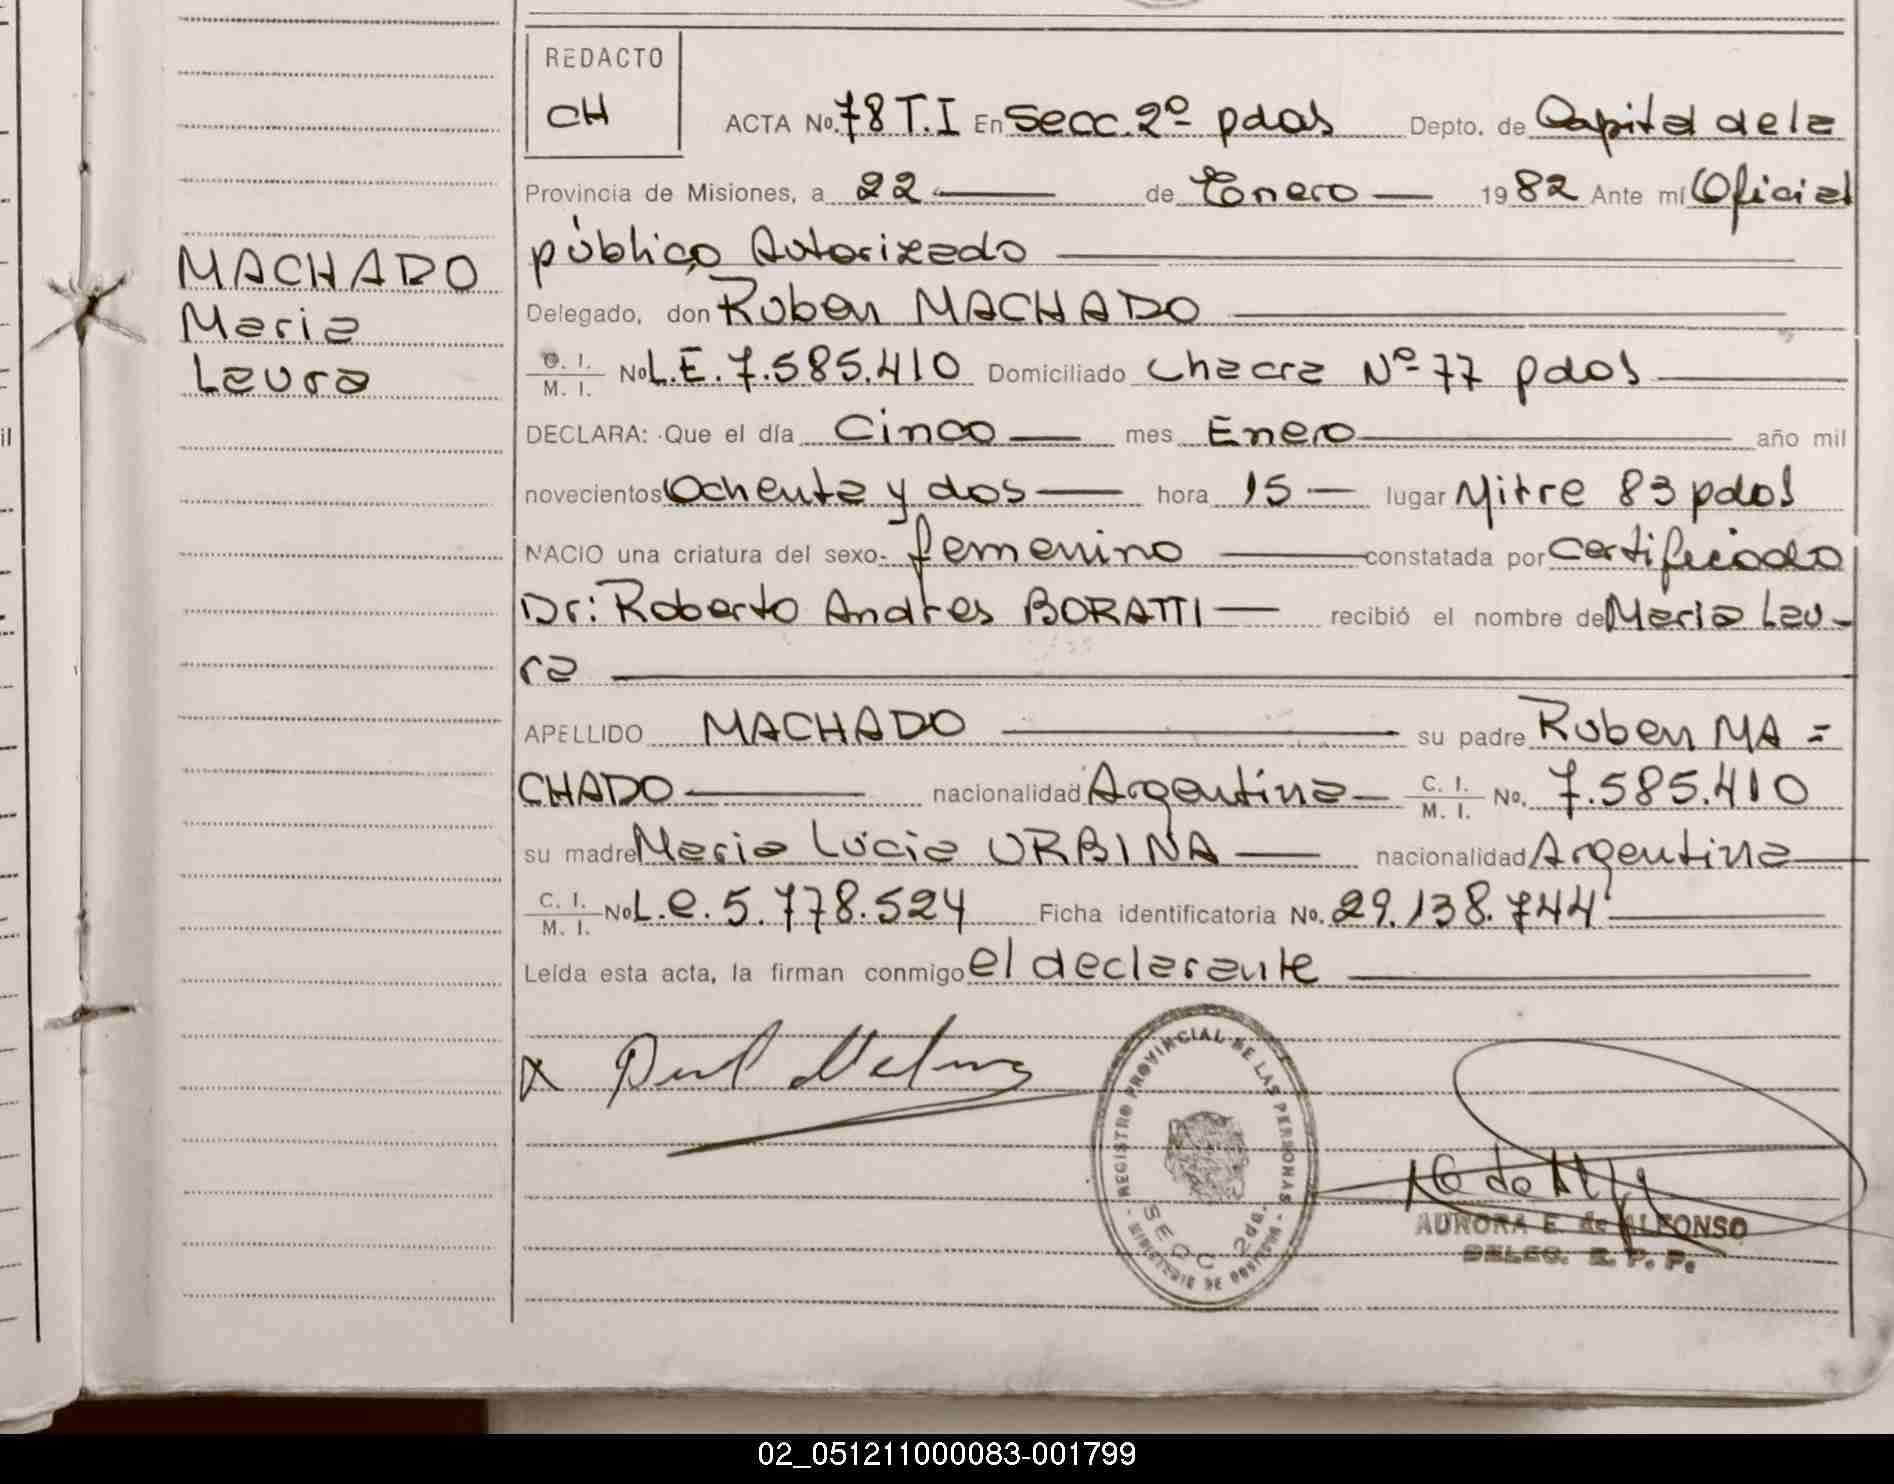 REDACTO
CH
ACTA No. 78 T.I En Secc. 2º pdas Depto. de Capital de la
Provincia de Misiones, a 22 de Enero 1982 Ante mí Oficial
público Autorizado
MACHADO
Maria
Laura
Delegado, don Ruben MACHADO
C. I. M. I. No L.E. 7.585.410 Domiciliado Chacra Nº 77 pdas
DECLARA: Que el día Cinco mes Enero año mil
novecientos Ochenta y dos hora 15 lugar Mitre 83 pdas
NACIO una criatura del sexo femenino constatada por Certificado
Dr: Roberto Andres BORATTI recibió el nombre de Maria Lau-
ra
APELLIDO MACHADO su padre Ruben MA=
CHADO nacionalidad Argentina C. I. M. I. No. 7.585.410
su madre Maria Lucia URBINA nacionalidad Argentina
C. I. M. I. No L.e. 5.778.524 Ficha identificatoria No. 29.138.744
Leída esta acta, la firman conmigo el declarante
X
REGISTRO PROVINCIAL DE LAS PERSONAS
SECC 2da.
MINISTERIO DE
AURORA E. de ALFONSO
DELEG. R. P. P.
il
02_051211000083-001799